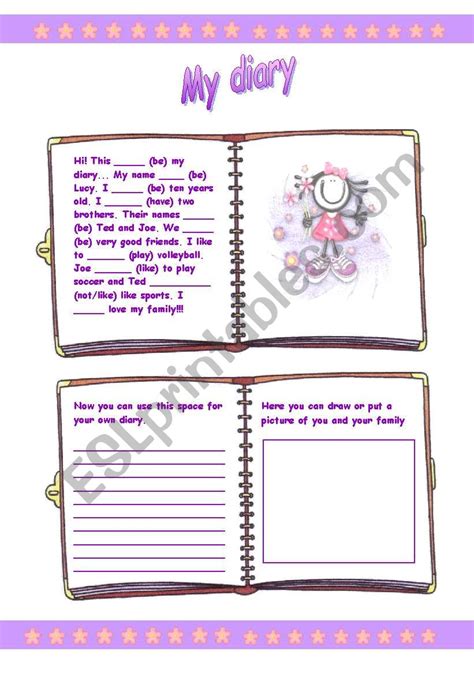 My diary
Hi! This _____ (be) my
diary... My name ____ (be)
Lucy. I _____ (be) ten years
old. I _____ (have) two
brothers. Their names _____
(be) Ted and Joe. We ____
(be) very good friends. I like
to ______ (play) volleyball.
Joe ______ (like) to play
soccer and Ted ________
(not/like) like sports. I
_____ love my family!!!
Now you can use this space for
your own diary.
Here you can draw or put a
picture of you and your family
ESLprintables.com